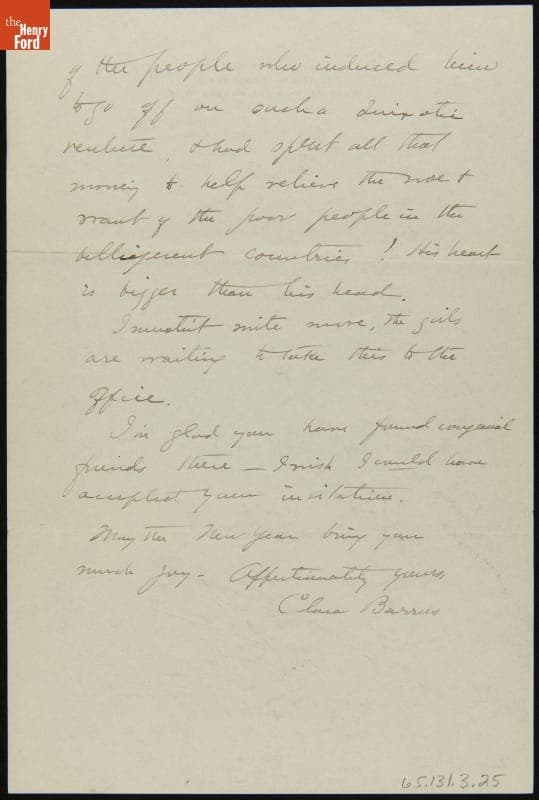 the
Henry
Ford
of the people who induced him
to go off on such a quixotic
venture, & had spent all that
money to help relieve the woe &
want of the poor people in the
belligerent countries! His heart
is bigger than his head.
I mustn't write more, the girls
are waiting to take this to the
office.
I'm glad you have found congenial
friends there — I wish I could have
accepted your invitation.
May the New Year bring you
much joy — Affectionately yours,
Clara Barrus
65.131.3.25